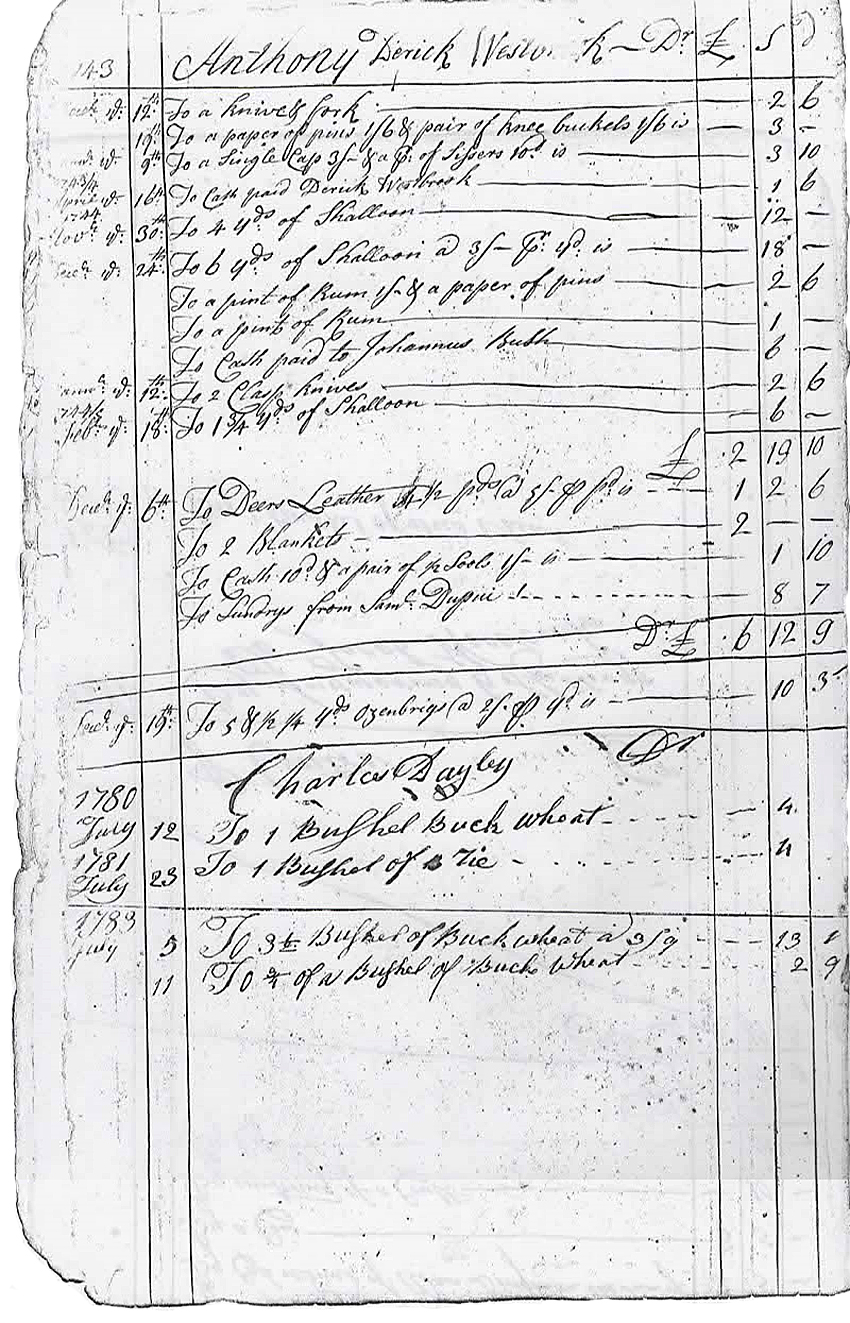 143 Anthony Derick West k — Dr £ S d
12th To a knive & fork 2 6
19th To a paper of pins 1/6 & pair of knee buckels 1/6 is 3 -
d: 9th To a Single Cap 3/- & a p: of Sissers 10d is 3 10
1743/4
April d: 16th To Cash paid Derick Westbrook 1 6
1744
Novr d: 30th To 4 yds of Shalloon 12 -
Decr d: 24th To 6 yds of Shalloon a 3/- pr yd is 18 -
To a pint of Rum 1/- & a paper of pins 2 6
To a pint of Rum 1 -
To Cash paid to Johannus Bush 6 -
d: 12th To 2 Clasp knives 2 6
1744/5
Febr d: 18th To 1 3/4 yds of Shalloon 6 -
£ 2 19 10
Decr d: 6th To Deers Leather 4 1/2 pds @ 5/- p pd is 1 2 6
To 2 Blankets 2 - -
To Cash 10d & a pair of Sools 1/- is 1 10
To Sundrys from Saml Dupui 8 7
Dr £ 6 12 9
Decr d: 19th To 5 & 1/2 1/4 yds Ozenbrigs @ 2/- p yd is 10 3
Charles Dayley Dr
1780
July 12 To 1 Bushel Buck wheat 4
1781
July 23 To 1 Bushel of Rie 4
1783
July 5 To 3 1/2 Bushel of Buck wheat a 3/9 13
11 To 3/4 of a Bushel of Buck wheat 2 9